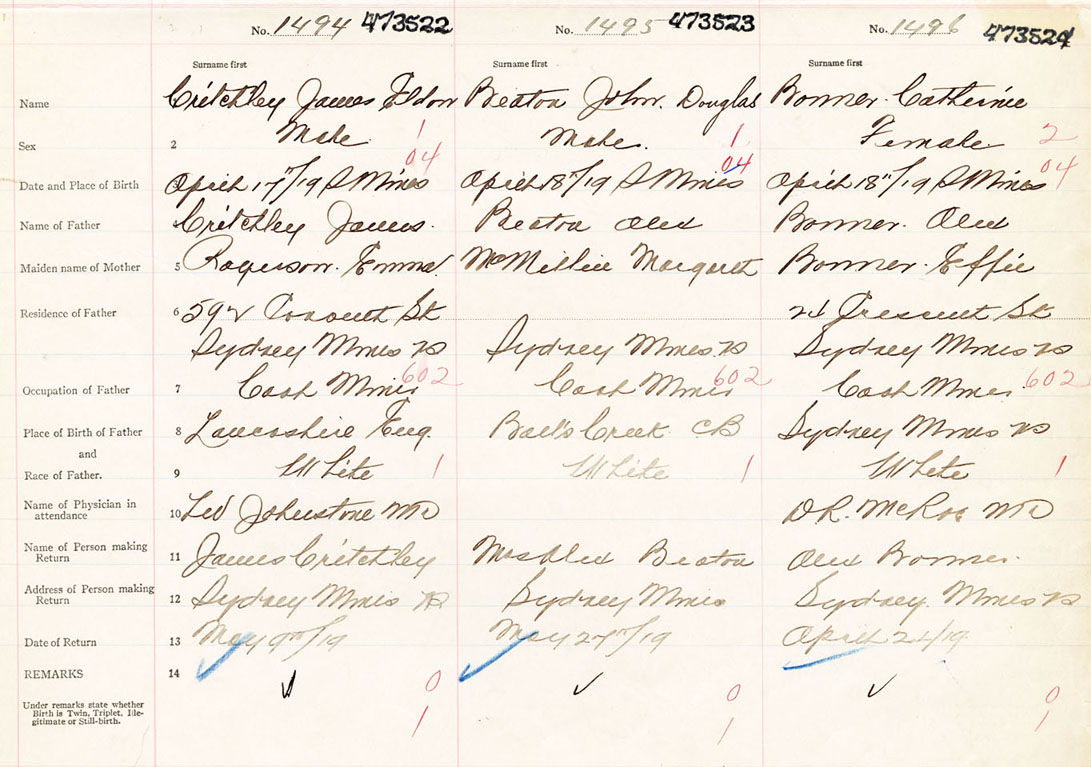 No. 1494 473522 No. 1495 473523 No. 1496 473524
Surname first Surname first Surname first
Name Critchley James Eldon Beaton John Douglas Bonner Catherine
Sex 2 Male 1 Male. 1 Female 2
04 04 04
Date and Place of Birth 3 April 17"/19 S Mines April 18"/19 S Mines April 18"/19 S Mines
Name of Father 4 Critchley James. Beaton Alex Bonner. Alex
Maiden name of Mother 5 Rogerson. Emma McMillie Margaret Bonner. Effie
Residence of Father 6 592 St 24 Crescent St
Sydney Mines NS Sydney Mines NS Sydney Mines NS
Occupation of Father 7 Coal Miner 602 Coal Miner 602 Coal Miner 602
Place of Birth of Father 8 Lancashire Eng. Ball's Creek CB Sydney Mines NS
and
Race of Father. 9 White 1 White 1 White 1
Name of Physician in
attendance 10 Johnstone MD D.R. McRae MD
Name of Person making
Return 11 James Critchley Mrs Alex Beaton Alex Bonner.
Address of Person making
Return 12 Sydney Mines NS Sydney Mines Sydney Mines NS
Date of Return 13 May 9th/19 May 27th/19 April 24/19
REMARKS 14
0 0 0
Under remarks state whether
Birth is Twin, Triplet, Ille-
gitimate or Still-birth.
1 1 1